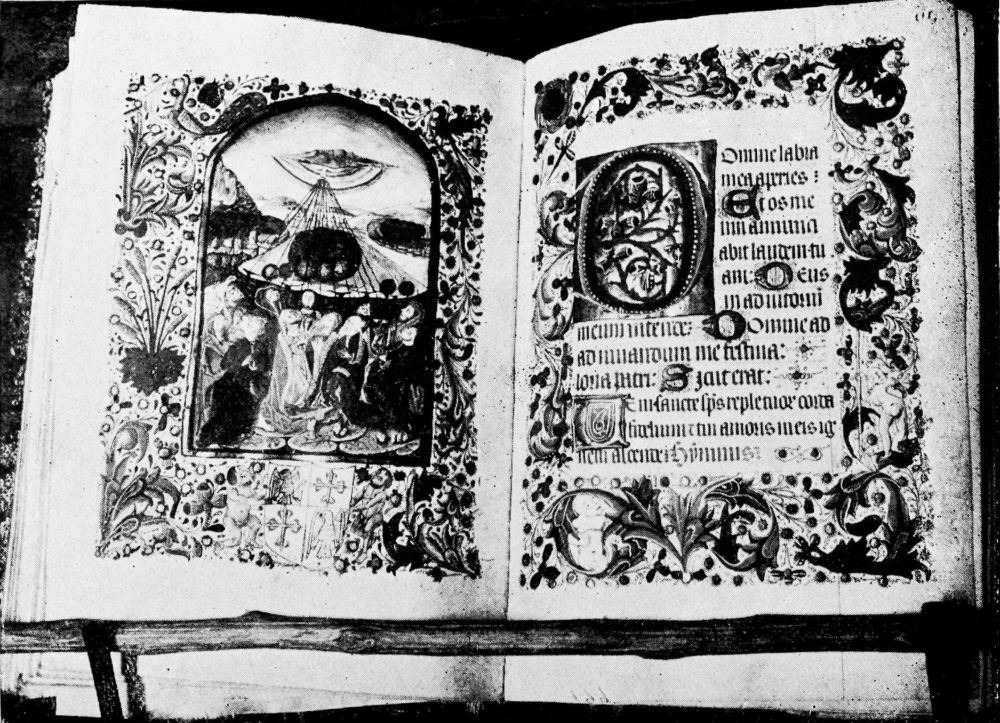 Omine labia
mea aperies :
Et os me
um annunci
abit laudem tu
am: Deus
in adiutoriū
meum intende: Domine ad
adiuuandum me festina:
loria patri: Sicut erat:
Eni sancte sps reple tuor corda
fidelium et tui amoris in eis ig
nem accende: Hÿmnus: